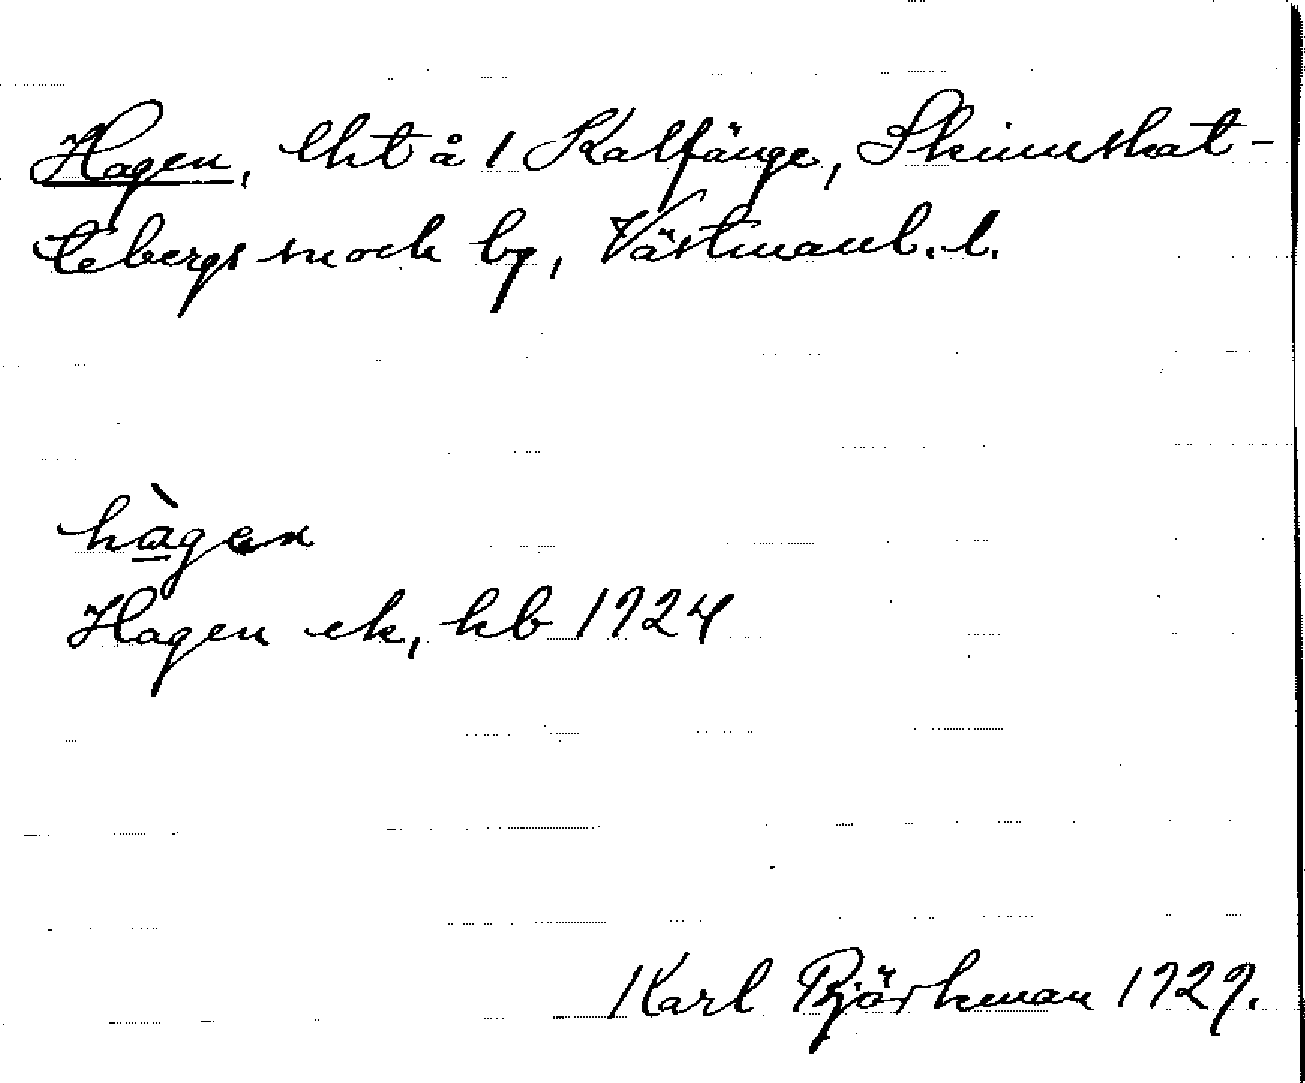 Hagen, lht å 1 Kalfänge, Skinnskat-
tebergs sn och bg, Västmanl. l.
hàgen
Hagen ek, kb 1924
Karl Björkman 1929.